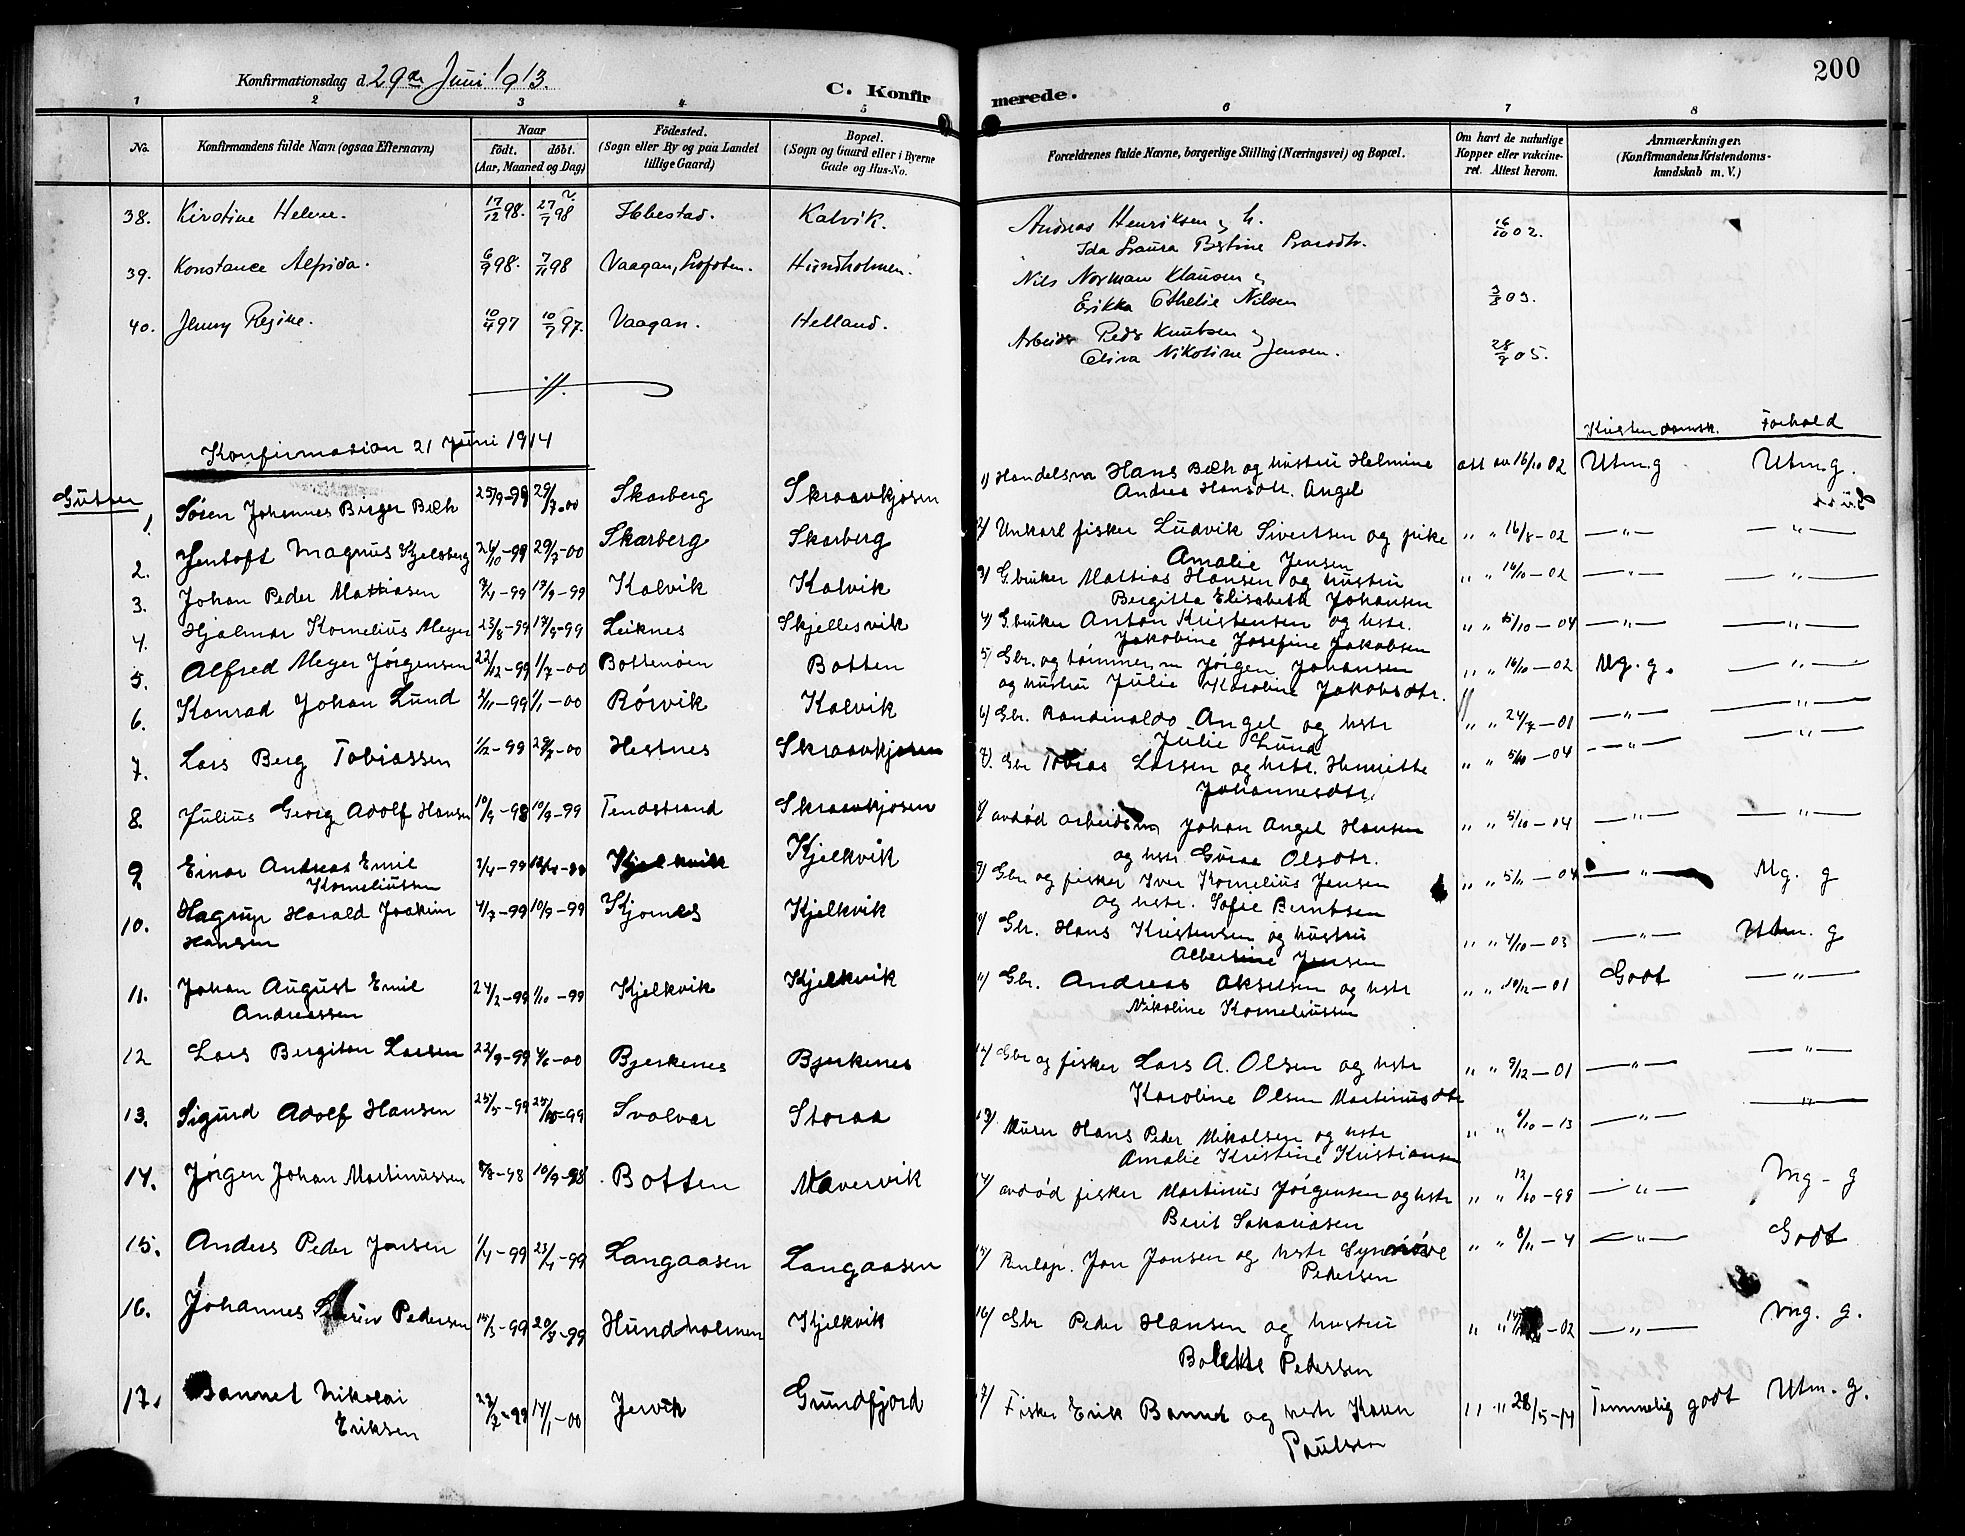 200
Konfirmationsdag d. 29de Juni 1913.
C. Konfirmerede.
1 2 3 4 5 6 7 8
No.
Konfirmandens fulde Navn (ogsaa Efternavn)
Naar
født. døbt.
(Aar, Maaned og Dag)
Fødested.
(Sogn eller By og paa Landet
tillige Gaard)
Bopæl.
(Sogn og Gaard eller i Byerne
Gade og Hus-No.
Forældrenes fulde Navne, borgerlige Stilling (Næringsvei) og Bopæl.
Om havt de naturlige
Kopper eller vakcine-
ret. Attest herom.
Anmærkninger.
(Konfirmandens Kristendoms-
kundskab m. V.)
38. Kirstine Helene. 17/12 98. 27/7 98 ? Ibbestad. Kalvik. Andreas Henriksen og h. 16/10 02.
Ida Laura Bertine
39. Konstance Alfrida. 6/9 98. 7/11 98 Vaagan, Lofoten. Hundholmen. Nils Norman Klausen og
Erikka Othelie Nilsen 3/8 03.
40. Jenny Regine. 10/4 97 10/7 97. Vaagan. Helland. Arbeider Peder Knutsen og
Oliva Nikoline Jensen. 28/7 05.
Konfirmasion 21 juni 1914
Kristendomsk. Forhold
Gutter
1. Søren Johannes Birger Bech 25/9-99 29/7-00 Skarberg Skraavkjosen 1/ Handelsm Hans Bech og hustru Helmine att av 16/10 02 Utm.g Utm.g.
Andrea Hansdtr. Angel
2. Jentoft Magnus Kjelsberg 26/10-99 29/7-00 Skarberg Skarberg 2/ Unkarl fisker Ludvik Sivertsen og pike " " 16/8-02 —"— —"—
Amalie Jensen
3. Johan Peder Mattiasen 7/1-99 17/9-99 Kalvik Kalvik 3/ G.bruker Mattias Hansen og hustru " " 16/10-02 —"— —"—
Bergitta Elisabeth Johansen
4. Hjalmar Kornelius Meyer 23/8-99 17/9-99 Leiknes Skjellesvik 4/ G.bruker Anton Kristensen og hstr. " " 5/10-04 —"— —"—
Jakobine Josefine Jakobsen
5. Alfred Meyer Jørgensen 22/12-99 1/7-00 Bottenøen Botten 5/ Gbr. og tømmerm Jørgen Johansen " " 16/10-02 Mg.g. —"—
og hustru Julie Karoline Jakobsdtr.
6. Konrad Johan Lund 2/11-99 1/1-00 Rørvik Kalvik 6/ Gbr. Randinaldo Angel og hstr " " 24/7-01 —"— —"—
Julie Lund
7. Lars Berg Tobiassen 1/12-99 29/7-00 Hestnes Skraavkjosen 7/. Gbr Tobias Larsen og hstr. Henriette " " 5/10-04 —"— —"—
Johannesdtr.
8. Julius Georg Adolf Hansen 10/9-98 10/9-99 Tendstrand Skraavkjosen 8/ avdød arbeidsm Johan Angel Hansen " " 5/10-04 —"— —"—
og hstr. Guroe Olsdtr.
9. Einar Andreas Emil 3/4-99 Kjelkvik Kjelkvik 9/ Gbr og fisker Iver Kornelius Jensen " " 5/11-04 —"— Mg. g
Korneliussen og hstr. Sofie Berntsen
10. Hagrup Harald Joakim 4/7-99 10/9-99 Kjornes Kjelkvik 10/ Gbr. Hans Kristensen og hustru " " 4/10-03 —"— Utm. g
Hansen Albertine Jensen
11. Johan August Emil 24/2-99 1/10-99 Kjelkvik Kjelkvik 11/ Gbr. Andreas Akselsen og hstr " " 10/12-01 Godt —"—
Andreassen Nikoline Korneliussen
12 Lars Bergiton Larsen 22/9-99 4/6-00 Bjerkenes Bjerkenes 12/ Gbr og fisker Lars A. Olsen og hstr " " 9/12-01 —"— —"—
Karoline Olsen Martinusdtr
13. Sigurd Adolf Hansen 25/5-99 25/10-99 Svolvær Storaa 13/ Murer Hans Peder Nikolsen og hstr " " 6/10-13 —"— —"—
Amalie Kristine Kristiansen
14. Jørgen Johan Martinussen 8/7-98 10/9-98 Botten Mavervik 14/ avdød fisker Martinus Jørgensen og hstr " " 12/10-99 —"— Mg - g
Berit Sakariasen
15. Anders Peder Jonsen 1/4-99 23/4-99 Langaasen Langaasen 15/ Jon Jonsen og hstr Synnøve " " 8/11-4 —"— Godt
Pedersen
16. Johannes Pedersen 15/3-99 20/8-99 Hundholmen Kjelkvik 16/ Gbr Peder Hansen og hustru " " -02 —"— Mg. g.
Bolette Pedersen
17. Bannet Nikolai 22/7-99 14/1-00 Jervik Grundfjord 17/ Fisker Erik Bannet og hstr Karen " " 28/5-14 Temmelig godt Utm. g.
Eriksen Paulsen